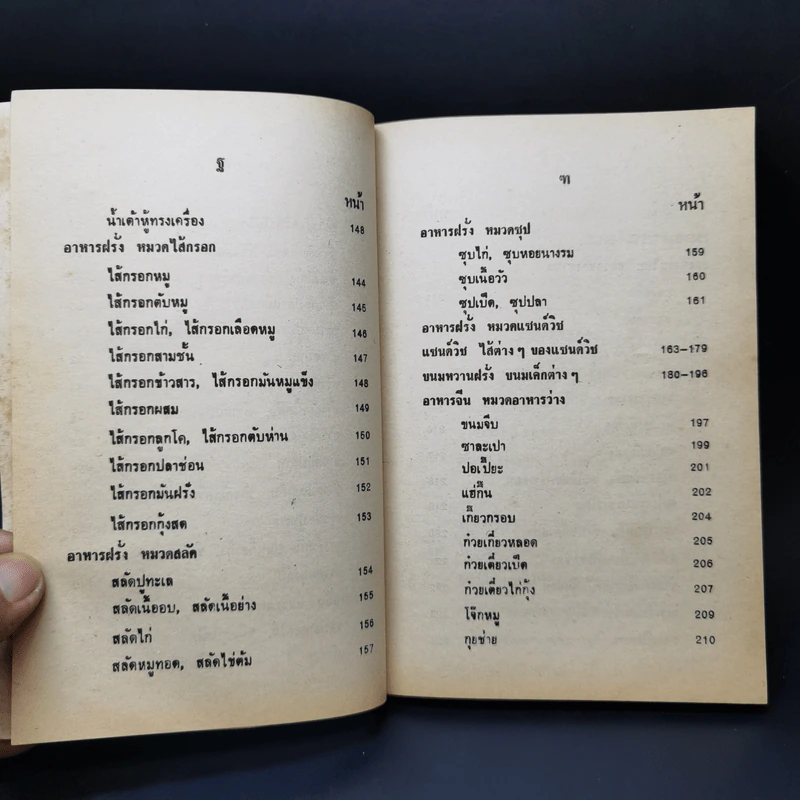 ฐ
หน้า
น้ำเต้าหู้ทรงเครื่อง 148
อาหารฝรั่ง หมวดไส้กรอก
ไส้กรอกหมู 144
ไส้กรอกตับหมู 145
ไส้กรอกไก่, ไส้กรอกเลือดหมู 146
ไส้กรอกสามชั้น 147
ไส้กรอกข้าวสาร, ไส้กรอกมันหมูแข็ง 148
ไส้กรอกผสม 149
ไส้กรอกลูกโค, ไส้กรอกตับห่าน 150
ไส้กรอกปลาช่อน 151
ไส้กรอกมันฝรั่ง 152
ไส้กรอกกุ้งสด 153
อาหารฝรั่ง หมวดสลัด
สลัดปูทะเล 154
สลัดเนื้ออบ, สลัดเนื้อย่าง 155
สลัดไก่ 156
สลัดหมูทอด, สลัดไข่ต้ม 157
ฑ
หน้า
อาหารฝรั่ง หมวดซุป
ซุบไก่, ซุบหอยนางรม 159
ซุบเนื้อวัว 160
ซุปเป็ด, ซุปปลา 161
อาหารฝรั่ง หมวดแซนด์วิช
แซนด์วิช ไส้ต่าง ๆ ของแซนด์วิช 163–179
ขนมหวานฝรั่ง ขนมเค็กต่าง ๆ 180–196
อาหารจีน หมวดอาหารว่าง
ขนมจีบ 197
ซาละเปา 199
ปอเปี๊ยะ 201
แฮ่กึ๊น 202
เกี๊ยวกรอบ 204
ก๋วยเตี๋ยวหลอด 205
ก๋วยเตี๋ยวเป็ด 206
ก๋วยเตี๋ยวไก่กุ้ง 207
โจ๊กหมู 209
กุยช่าย 210